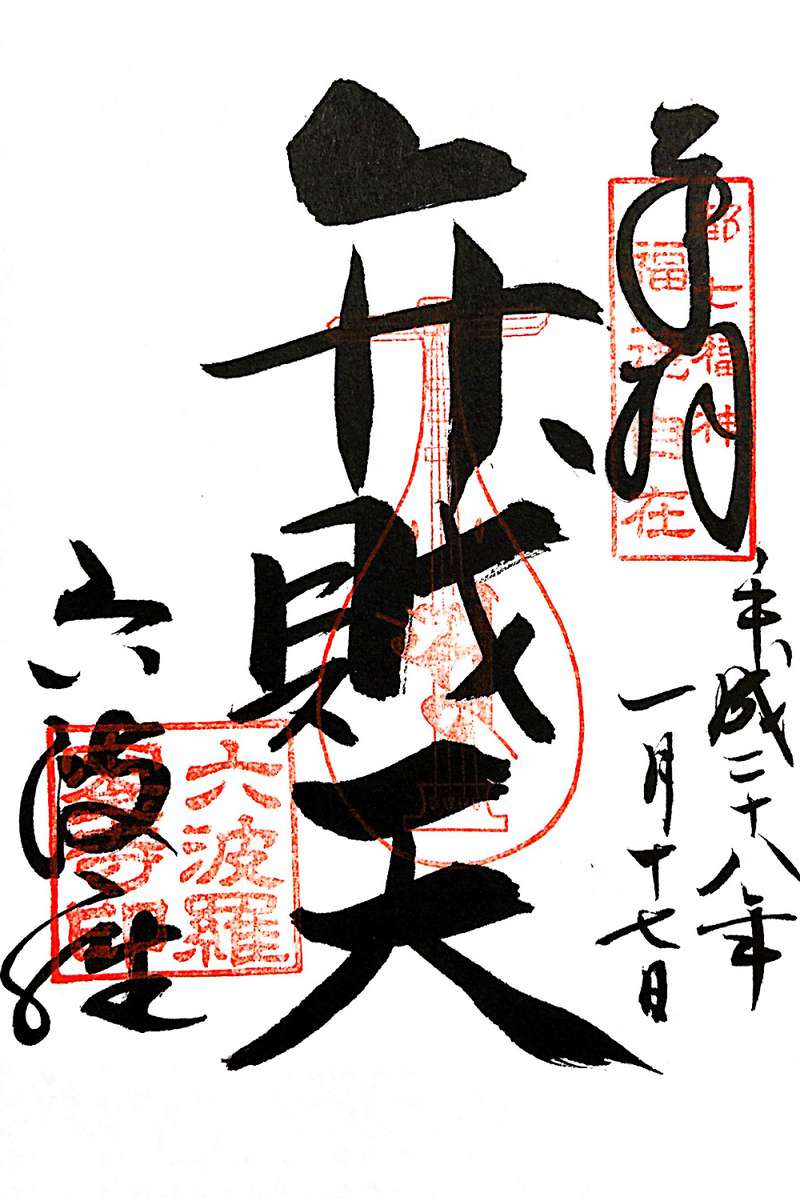 奉拝
都七福神
福徳自在
平成二十八年
一月十七日
弁財天
六波羅
蜜寺印
六波羅密